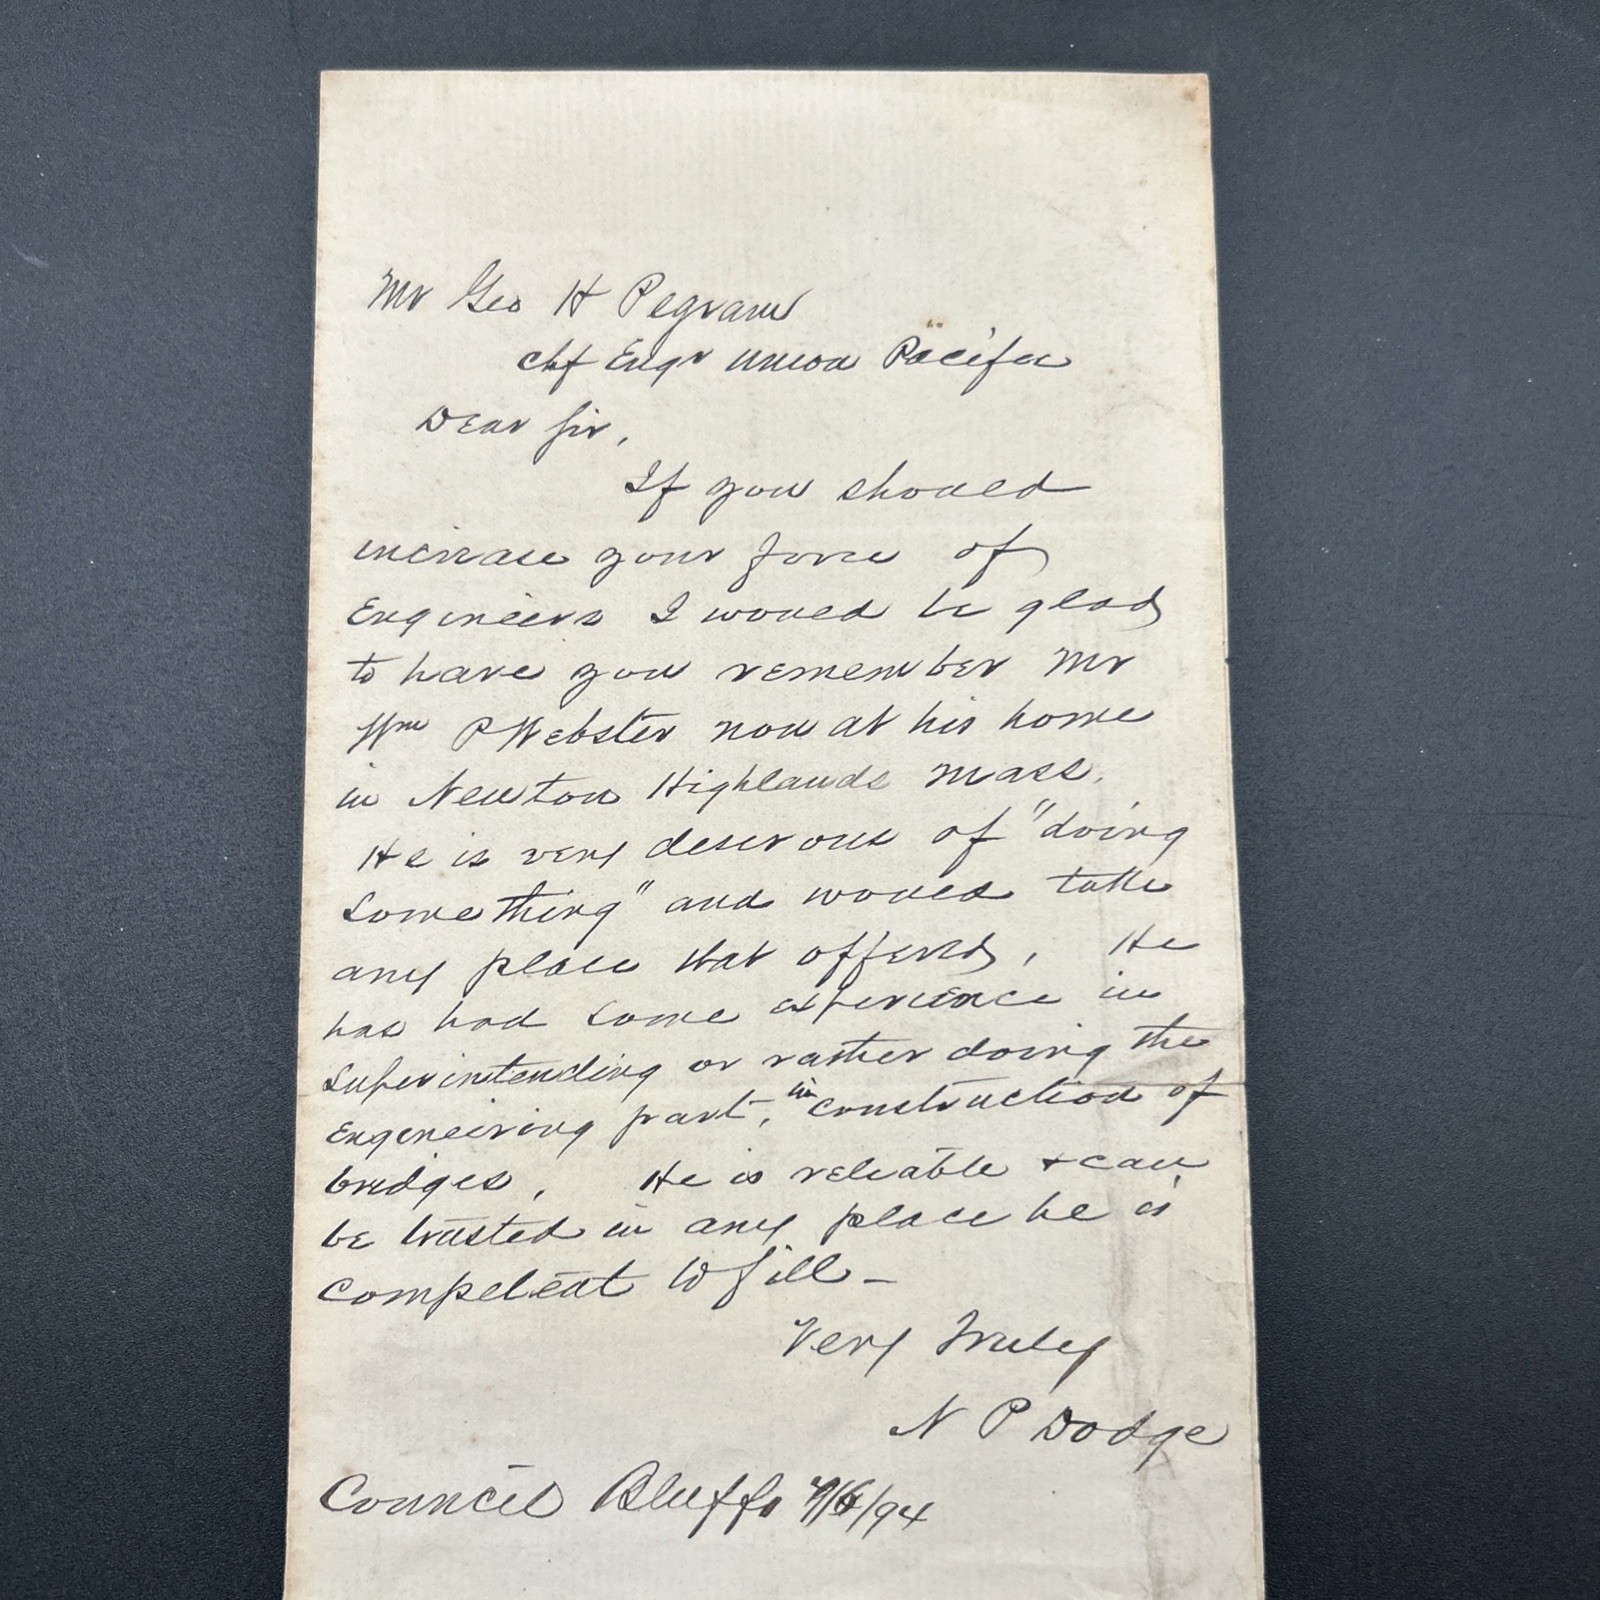 Mr Geo H Pegram
Chf Engr Union Pacific
Dear Sir,
If you should
increase your force of
Engineers I would be glad
to have you remember Mr
Wm P Webster now at his home
in Newton Highlands Mass.
He is very desirous of "doing
something" and would take
any place that offered, He
has had some experience in
superintending or rather doing the
Engineering part, in construction of
bridges, He is reliable + can
be trusted in any place he is
competent to fill –
Very Truly
N P Dodge
Council Bluffs /94